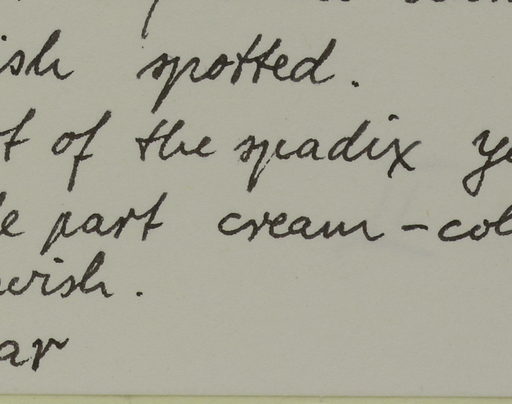 ish spotted.
t of the spadix ye
e part cream-col
wish.
ar